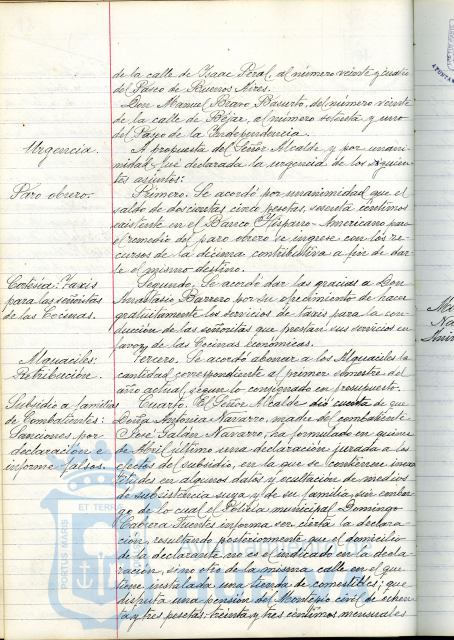 de la calle de Isaac Peral, al número veinte y cuatro
del Paseo de Buenos Aires.
Don Manuel Bravo Basurto, del número veinte
de la calle de Béjar, al número setenta y uno
del Paseo de la Independencia.
Urgencia.
A propuesta del Señor Alcalde y por unani-
midad fué declarada la urgencia de los siguien-
tes asuntos:
Paro obrero.
Primero: Se acordó por unanimidad que el
saldo de doscientas cinco pesetas, sesenta céntimos
existente en el Banco Hispano-Americano para
el remedio del paro obrero se ingrese con los re-
cursos de la décima contributiva a fin de dar-
le el mismo destino.
Cortesía: Taxis
para las señoritas
de las Cocinas.
Segundo. Se acordó dar las gracias a Don
Anastasio Barrero por su ofrecimiento de hacer
gratuitamente los servicios de taxis para la con-
ducción de las señoritas que prestan sus servicios en
favor de las Cocinas económicas.
Alguaciles:
Retribución.
Tercero. Se acordó abonar a los Alguaciles la
cantidad correspondiente al primer semestre del
año actual, según lo consignado en presupuesto.
Subsidio a familias
de Combatientes:
Sanciones por
declaración e
informe falsos.
Cuarto. El Señor Alcalde dió cuenta de que
Doña Antonia Navarro, madre del combatiente
José Galán Navarro, ha formulado en quince
de Abril último una declaración jurada a los
efectos de subsidio, en la que se contienen inexac-
titudes en algunos datos y ocultación de medios
de subsistencia suya y de su familia, sin embar-
go de lo cual el Policía municipal Domingo
Cabrera Fuentes informa ser cierta la declara-
ción, resultando posteriormente que el domicilio
de la declarante no es el indicado en la decla-
ración, sino otro de la misma calle en el que
tiene instalada una tienda de comestibles; que
disfruta una pensión del Montepío civil de ochen-
ta y tres pesetas, treinta y tres céntimos mensuales
ET TERRIS
PORTUS MARIS